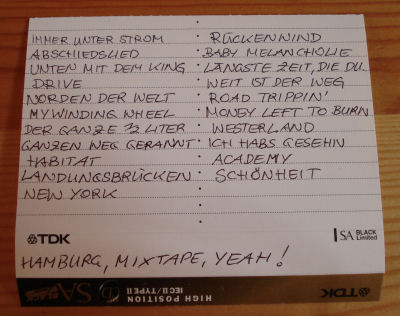 IMMER UNTER STROM
ABSCHIEDSLIED
UNTEN MIT DEM KING
DRIVE
NORDEN DER WELT
MY WINDING WHEEL
DER GANZE ½ LITER
GANZEN WEG GERANNT
HABITAT
LANDUNGSBRÜCKEN
NEW YORK
RÜCKENWIND
BABY MELANCHOLIE
LÄNGSTE ZEIT, DIE DU..
WEIT IST DER WEG
ROAD TRIPPIN'
MONEY LEFT TO BURN
WESTERLAND
ICH HABS GESEHN
ACADEMY
SCHÖNHEIT
TDK
SA BLACK
Limited
HAMBURG, MIXTAPE, YEAH!
HIGH POSITION
IEC II/TYPE II
SA
TDK